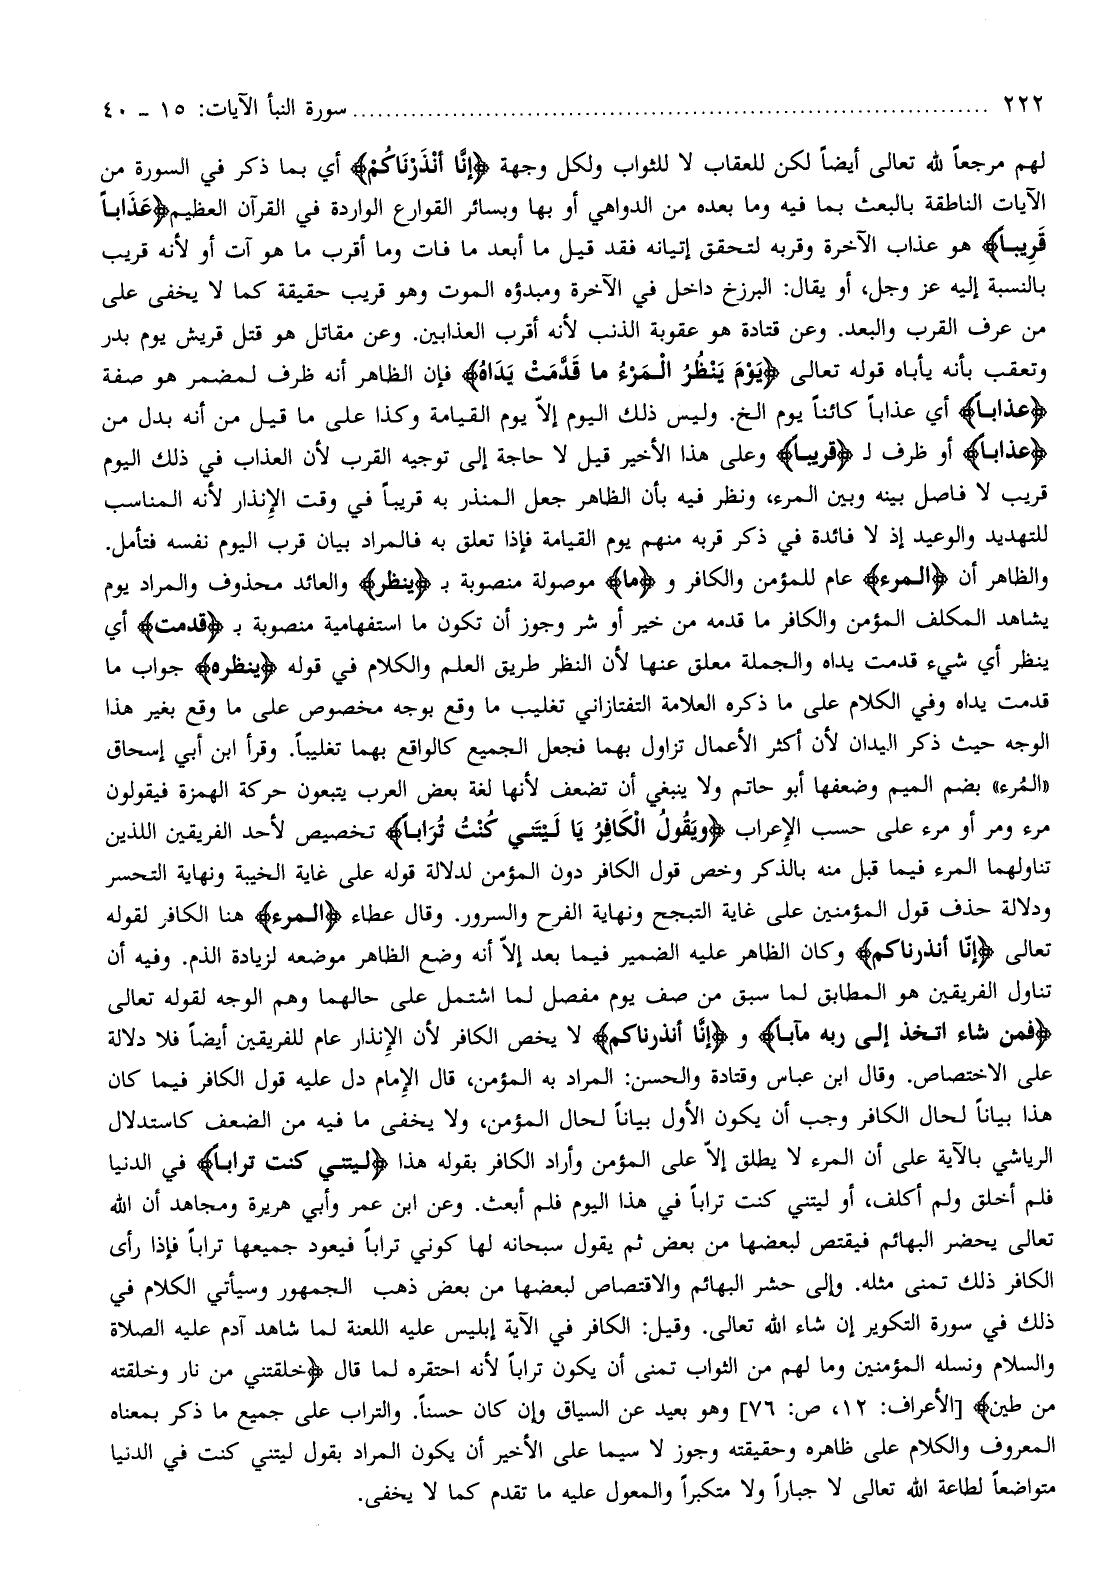 ٢٢٢ ........................................ سورة النبأ الآيات: ١٥ - ٤٠
لهم مرجعاً لله تعالى أيضاً لكن للعقاب لا للثواب ولكل وجهة ﴿إنَّا أنْذَرْنَاكُمْ﴾ أي بما ذكر في السورة من
الآيات الناطقة بالبعث بما فيه وما بعده من الدواهي أو بها وبسائر القوارع الواردة في القرآن العظيم﴿عَذَاباً
قَرِيباً﴾ هو عذاب الآخرة وقربه لتحقق إتيانه فقد قيل ما أبعد ما فات وما أقرب ما هو آت أو لأنه قريب
بالنسبة إليه عز وجل، أو يقال: البرزخ داخل في الآخرة ومبدؤه الموت وهو قريب حقيقة كما لا يخفى على
من عرف القرب والبعد. وعن قتادة هو عقوبة الذنب لأنه أقرب العذابين. وعن مقاتل هو قتل قريش يوم بدر
وتعقب بأنه يأباه قوله تعالى ﴿يَوْمَ يَنْظُرُ الْمَرْءُ ما قَدَّمَتْ يَدَاهُ﴾ فإن الظاهر أنه ظرف لمضمر هو صفة
﴿عذاباً﴾ أي عذاباً كائناً يوم الخ. وليس ذلك اليوم إلاّ يوم القيامة وكذا على ما قيل من أنه بدل من
﴿عذاباً﴾ أو ظرف لـ ﴿قريباً﴾ وعلى هذا الأخير قيل لا حاجة إلى توجيه القرب لأن العذاب في ذلك اليوم
قريب لا فاصل بينه وبين المرء، ونظر فيه بأن الظاهر جعل المنذر به قريباً في وقت الإنذار لأنه المناسب
للتهديد والوعيد إذ لا فائدة في ذكر قربه منهم يوم القيامة فإذا تعلق به فالمراد بيان قرب اليوم نفسه فتأمل.
والظاهر أن ﴿المرء﴾ عام للمؤمن والكافر و ﴿ما﴾ موصولة منصوبة بـ ﴿ينظر﴾ والعائد محذوف والمراد يوم
يشاهد المكلف المؤمن والكافر ما قدمه من خير أو شر وجوز أن تكون ما استفهامية منصوبة بـ ﴿قدمت﴾ أي
ينظر أي شيء قدمت يداه والجملة معلق عنها لأن النظر طريق العلم والكلام في قوله ﴿ينظره﴾ جواب ما
قدمت يداه وفي الكلام على ما ذكره العلامة التفتازاني تغليب ما وقع بوجه مخصوص على ما وقع بغير هذا
الوجه حيث ذكر اليدان لأن أكثر الأعمال تزاول بهما فجعل الجميع كالواقع بهما تغليباً. وقرأ ابن أبي إسحاق
«المُرء» بضم الميم وضعفها أبو حاتم ولا ينبغي أن تضعف لأنها لغة بعض العرب يتبعون حركة الهمزة فيقولون
مرء ومر أو مرء على حسب الإعراب ﴿ويَقُولُ الْكَافِرُ يَا لَيْتَني كُنْتُ تُرَاباً﴾ تخصيص لأحد الفريقين اللذين
تناولهما المرء فيما قبل منه بالذكر وخص قول الكافر دون المؤمن لدلالة قوله على غاية الخيبة ونهاية التحسر
ودلالة حذف قول المؤمنين على غاية التبجح ونهاية الفرح والسرور. وقال عطاء ﴿المرء﴾ هنا الكافر لقوله
تعالى ﴿إنّا أنذرناكم﴾ وكان الظاهر عليه الضمير فيما بعد إلاّ أنه وضع الظاهر موضعه لزيادة الذم. وفيه أن
تناول الفريقين هو المطابق لما سبق من صف يوم مفصل لما اشتمل على حالهما وهم الوجه لقوله تعالى
﴿فمن شاء اتخذ إلى ربه مآباً﴾ و ﴿إنَّا أنذرناكم﴾ لا يخص الكافر لأن الإنذار عام للفريقين أيضاً فلا دلالة
على الاختصاص. وقال ابن عباس وقتادة والحسن: المراد به المؤمن، قال الإمام دل عليه قول الكافر فيما كان
هذا بياناً لحال الكافر وجب أن يكون الأول بياناً لحال المؤمن، ولا يخفى ما فيه من الضعف كاستدلال
الرياشي بالآية على أن المرء لا يطلق إلاّ على المؤمن وأراد الكافر بقوله هذا ﴿ليتني كنت تراباً﴾ في الدنيا
فلم أخلق ولم أكلف، أو ليتني كنت تراباً في هذا اليوم فلم أبعث. وعن ابن عمر وأبي هريرة ومجاهد أن الله
تعالى يحضر البهائم فيقتص لبعضها من بعض ثم يقول سبحانه لها كوني تراباً فيعود جميعها تراباً فإذا رأى
الكافر ذلك تمنى مثله. وإلى حشر البهائم والاقتصاص لبعضها من بعض ذهب الجمهور وسيأتي الكلام في
ذلك في سورة التكوير إن شاء الله تعالى. وقيل: الكافر في الآية إبليس عليه اللعنة لما شاهد آدم عليه الصلاة
والسلام ونسله المؤمنين وما لهم من الثواب تمنى أن يكون تراباً لأنه احتقره لما قال ﴿خلقتني من نار وخلقته
من طين﴾ [الأعراف: ١٢، ص: ٧٦] وهو بعيد عن السياق وإن كان حسناً. والتراب على جميع ما ذكر بمعناه
المعروف والكلام على ظاهره وحقيقته وجوز لا سيما على الأخير أن يكون المراد بقول ليتني كنت في الدنيا
متواضعاً لطاعة الله تعالى لا جباراً ولا متكبراً والمعول عليه ما تقدم كما لا يخفى.